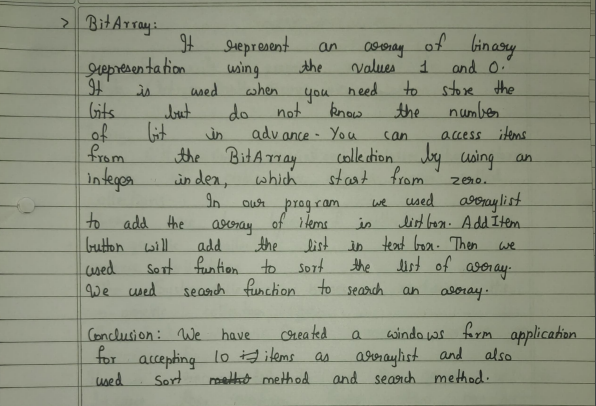 > BitArray:
It represent an array of binary
representation using the values 1 and 0.
It is used when you need to store the
bits but do not know the number
of bit in advance. You can access items
from the BitArray collection by using an
integer index, which start from zero.
In our program we used arraylist
to add the array of items in listbox. AddItem
button will add the list in text box. Then we
used sort funtion to sort the list of array.
We used search function to search an array.
Conclusion: We have created a windows form application
for accepting 10 items as arraylist and also
used sort method and search method.